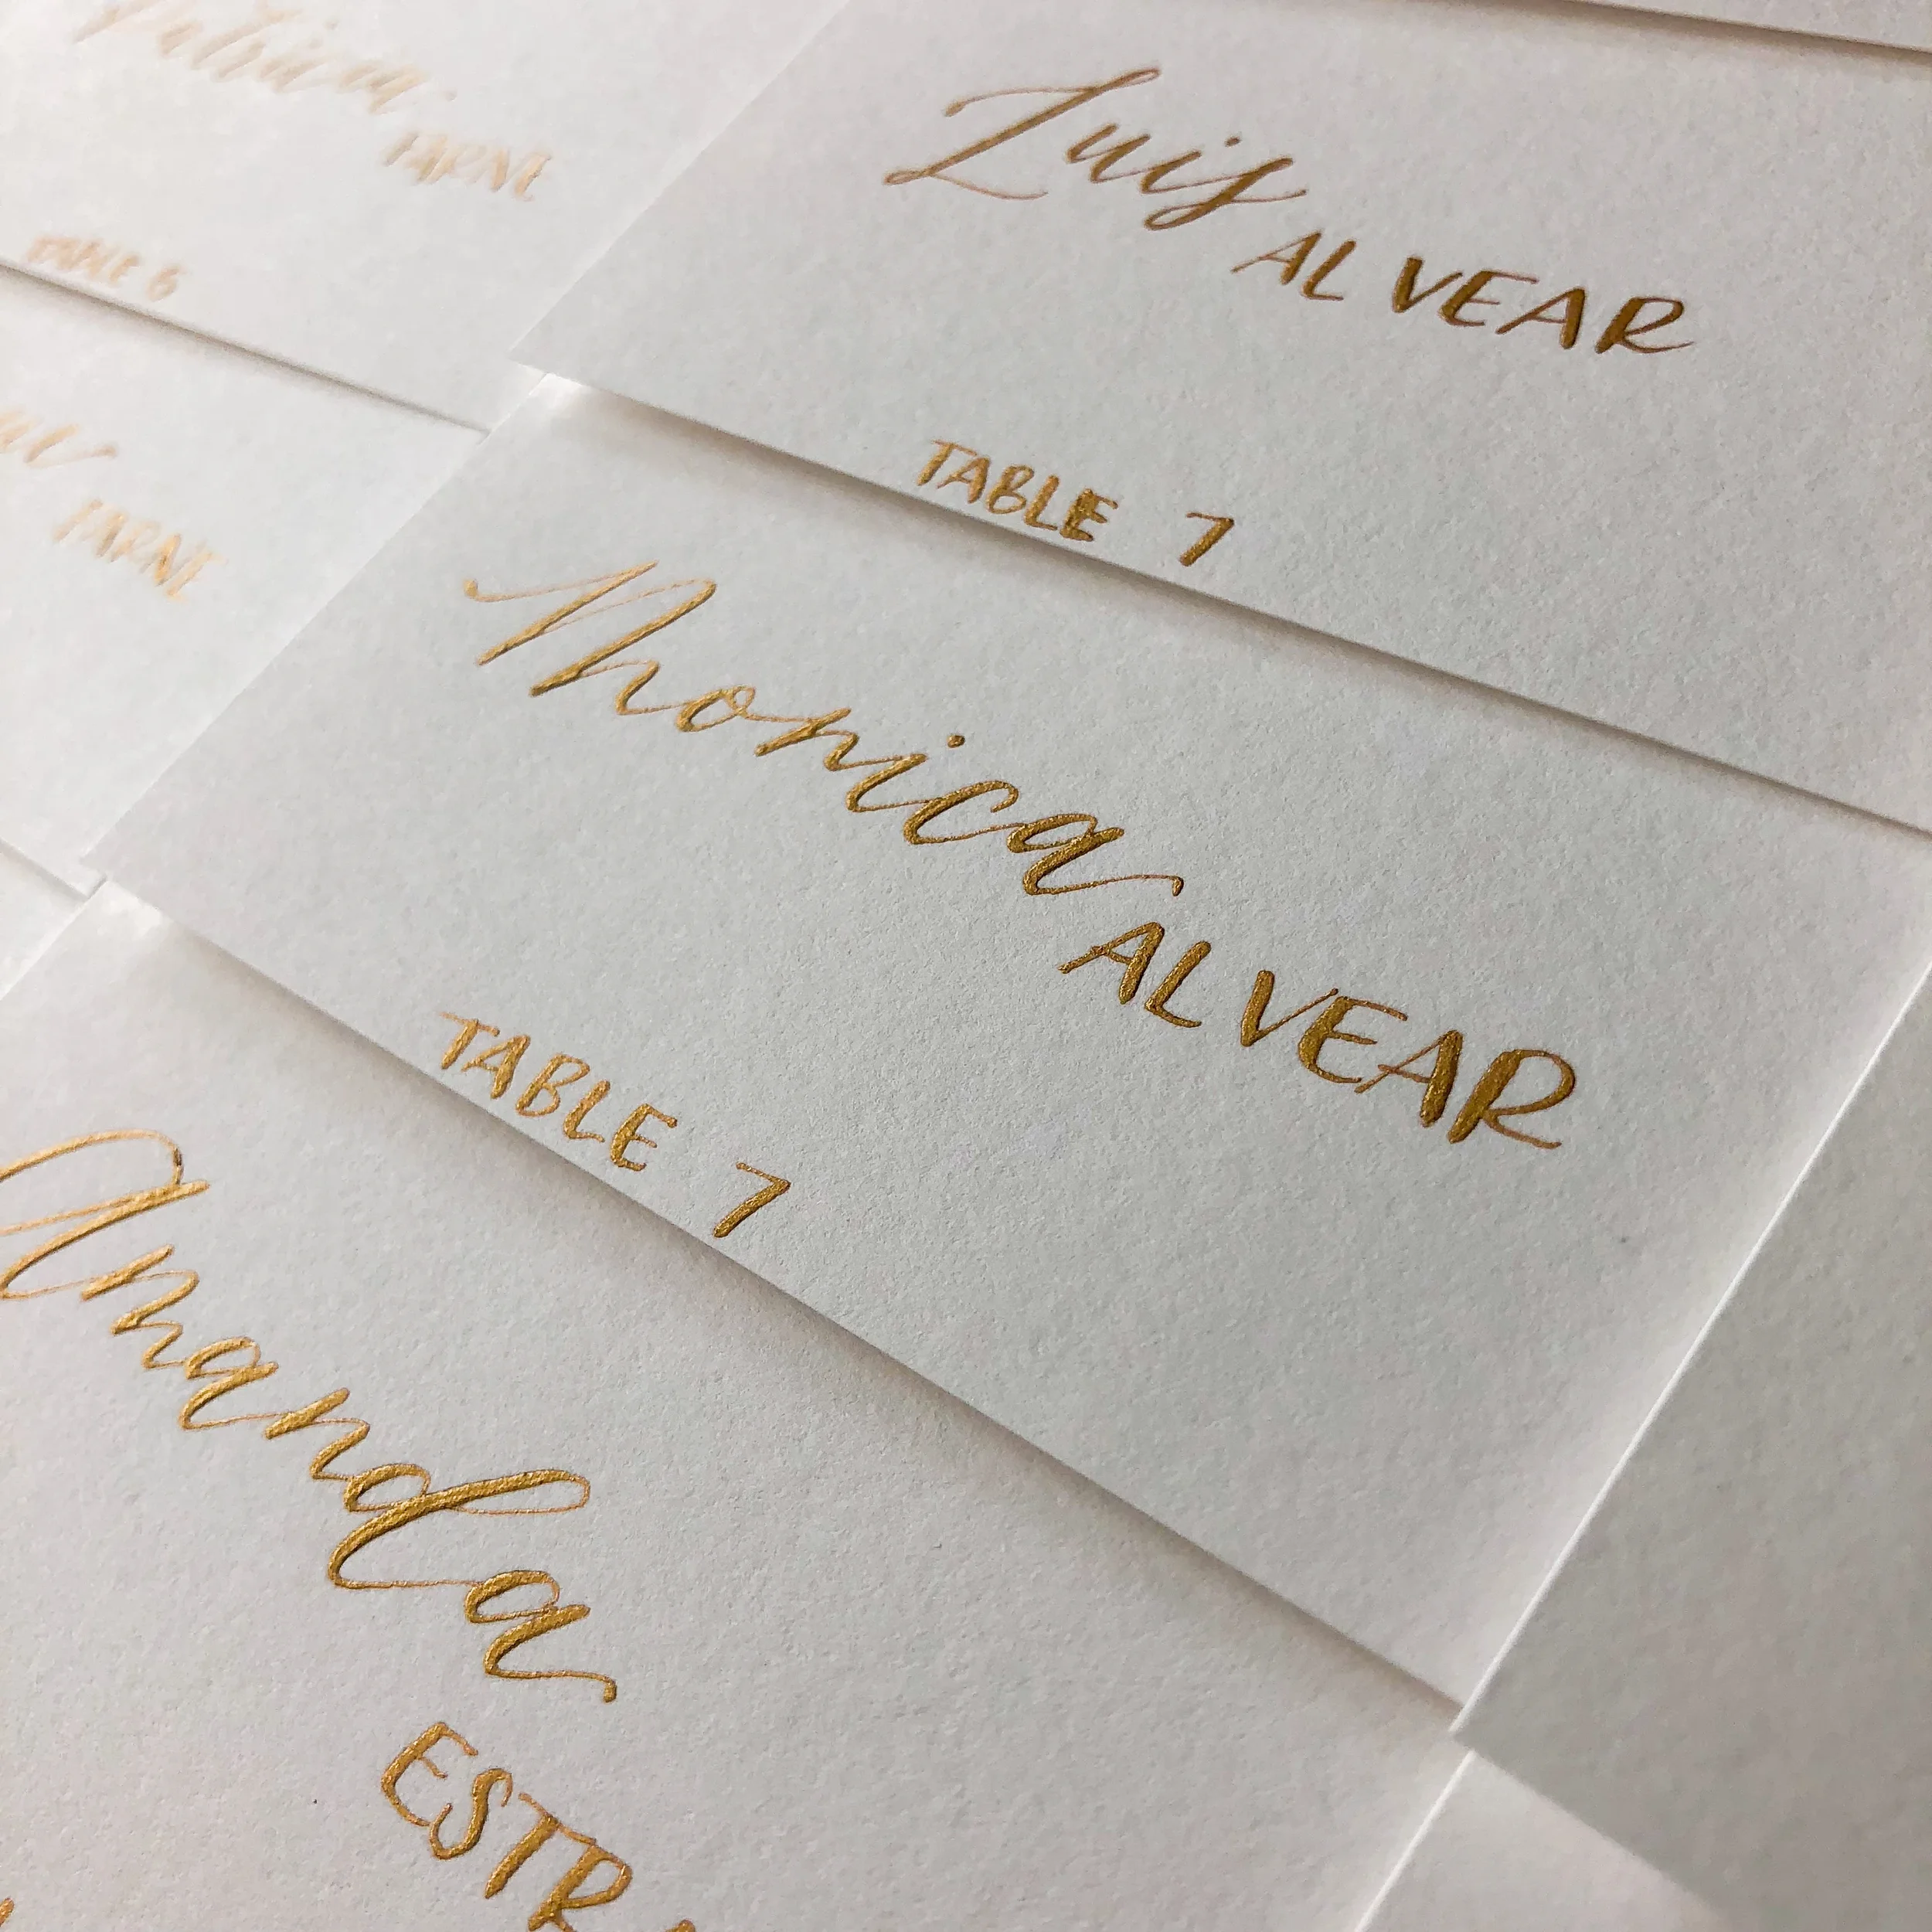 Patricia
FARNE
TABLE 6
FARNE
Luis
ALVEAR
TABLE 7
Monica
ALVEAR
TABLE 7
Amanda
ESTR